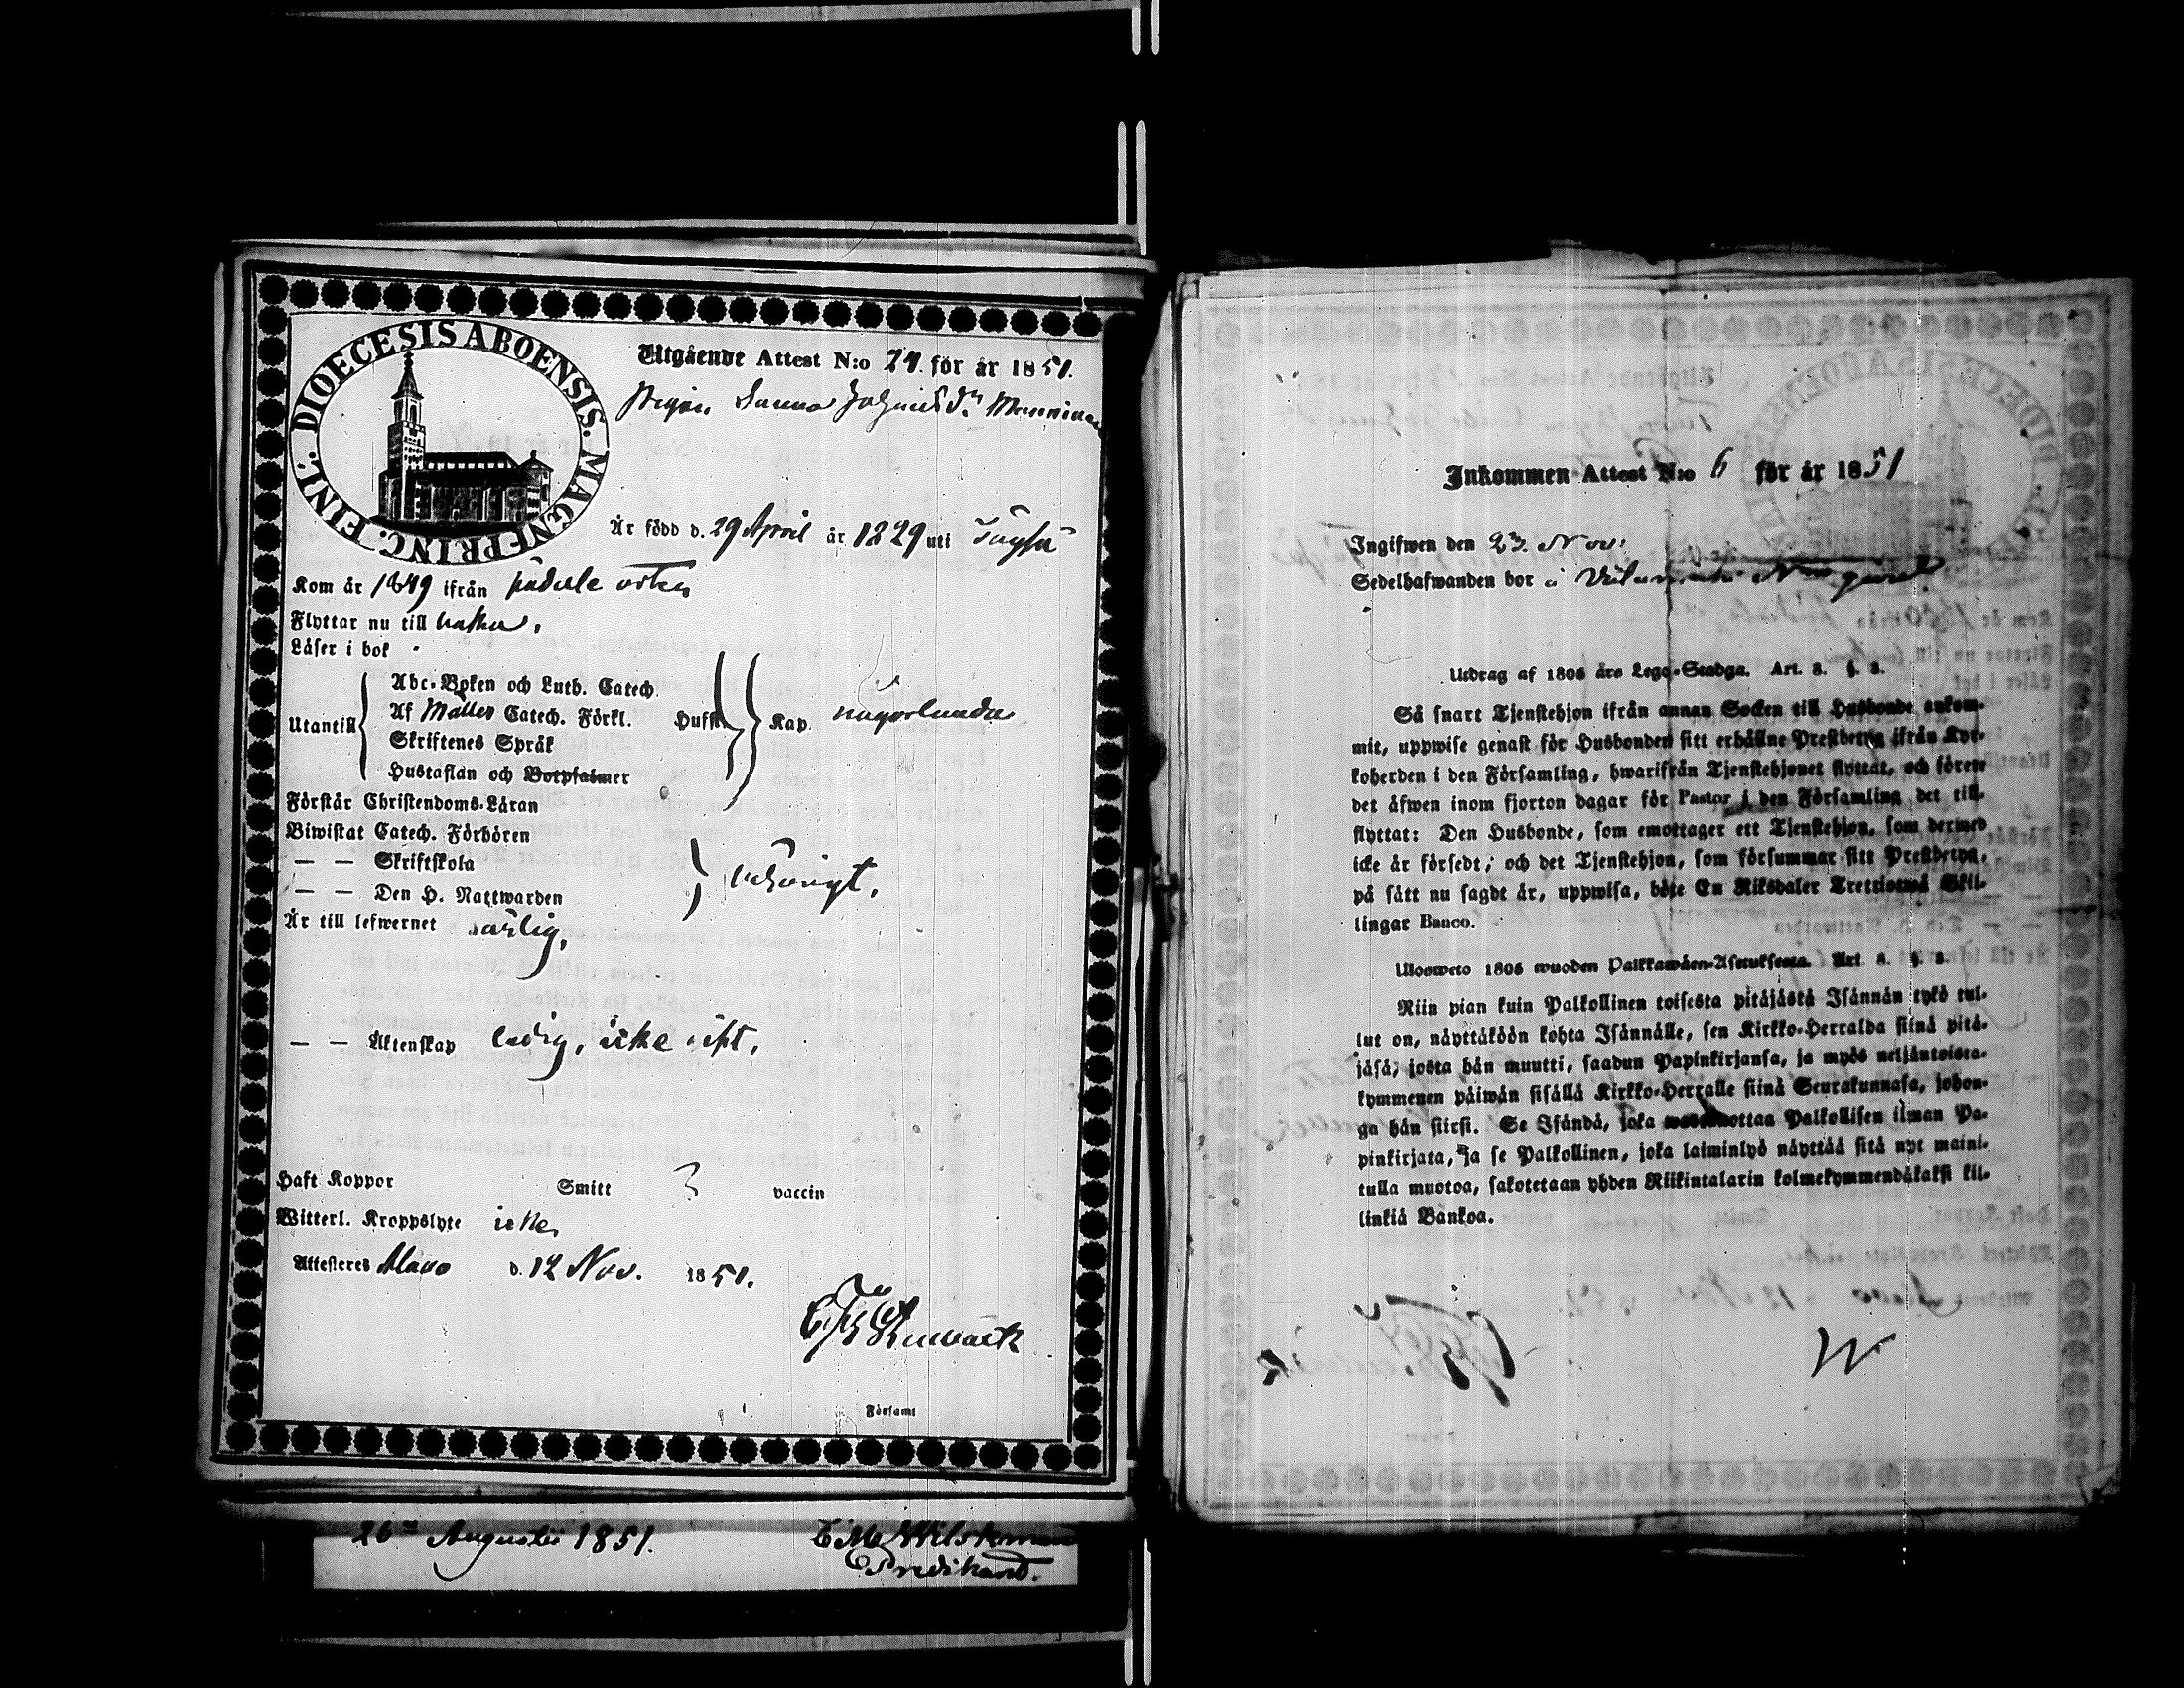 DIOECESIS ABOENSIS. MAGN. PRINC. FINL.
Utgående Attest N:o 74. för år 1851.
Pigan Sanna Johansdr Manninen
Är född d. 29 April år 1829 uti Töysä
Kom år 1849 ifrån
Flyttar nu till
Läser i bok
Abc-Boken och Luth. Catech.
Utantill Af Möllers Catech. Förkl. Hufst. Kap. någorlunda
Skriftenes Språk
Hustaflan och Botpsalmer
Förstår Christendoms-Läran
Biwistat Catech. Förhören
— — Skriftskola behörigt.
— — Den H. Nattwarden
Är till lefwernet ärlig,
— — Äktenskap ledig, icke gift,
Haft Koppor Smitt vaccin
Witterl. Kroppslyte icke,
Attesteres Alavo d. 12 Nov. 1851.
Församl
26 Augusti 1851.
Predikand.
Inkommen Attest N:o 6 för år 1851
Ingifwen den 23. Nov:
Sedelhafwanden bor å
Utdrag af 1805 års Lego-Stadga. Art. 3. §. 3.
Så snart Tjenstehjon ifrån annan Socken till Husbonde ankom-
mit, uppwise genast för Husbonden sitt erhållne Prestbetyg ifrån Kyr-
koherden i den Församling, hwarifrån Tjenstehjonet flyttat, och förete
det äfwen inom fjorton dagar för Pastor i den Församling det till-
flyttat: Den Husbonde, som emottager ett Tjenstehjon, som dermed
icke är försedt; och det Tjenstehjon, som försummar sitt Prestbetyg,
på sätt nu sagdt är, uppwisa, böte En Riksdaler Trettiotwå Skil-
lingar Banco.
Ulosweto 1805 wuoden Palkkawäen-Asetuksesta. Art. 3. §. 3.
Niin pian kuin Palkollinen toisesta pitäjästä Isännän tykö tul-
lut on, näyttäköön kohta Isännälle, sen Kirkko-Herralda siinä pitä-
jäsä, josta hän muutti, saadun Papinkirjansa, ja myös neljäntoista-
kymmenen päiwän sisällä Kirkko-Herralle siinä Seurakunnasa, johon-
ga hän siirsi. Se Isändä, joka wastanottaa Palkollisen ilman Pa-
pinkirjata, ja se Palkollinen, joka laiminlyö näyttää sitä nyt maini-
tulla muotoa, sakotetaan yhden Riikintalarin kolmekymmendäkaksi kil-
linkiä Bankoa.